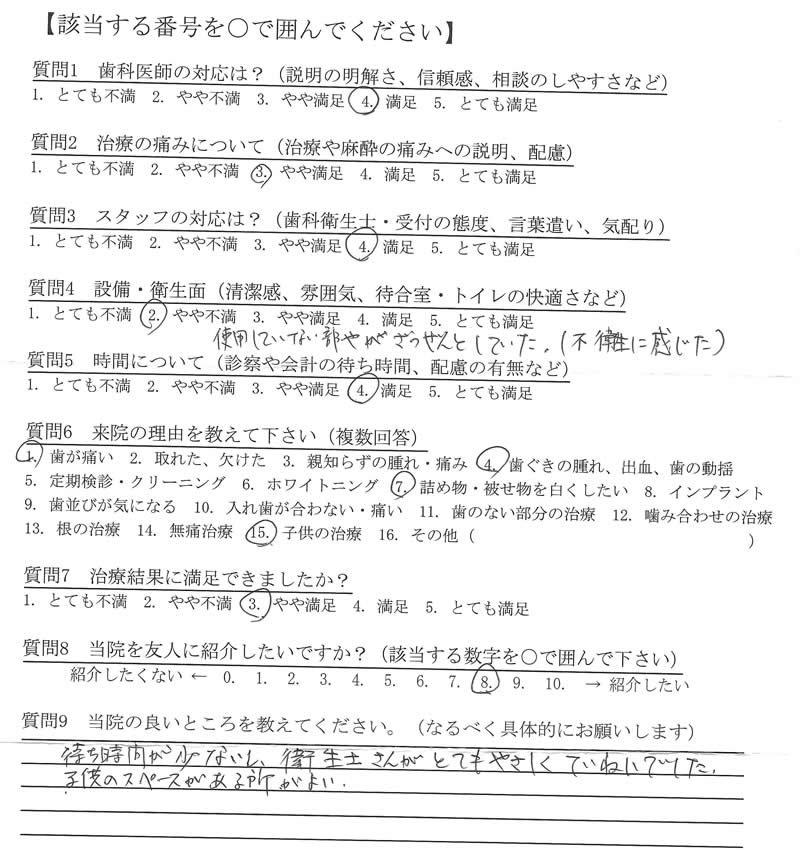 【該当する番号を○で囲んでください】
質問1　歯科医師の対応は？（説明の明解さ、信頼感、相談のしやすさなど）
1. とても不満 2. やや不満 3. やや満足 4. 満足 5. とても満足
質問2　治療の痛みについて（治療や麻酔の痛みへの説明、配慮）
1. とても不満 2. やや不満 3. やや満足 4. 満足 5. とても満足
質問3　スタッフの対応は？（歯科衛生士・受付の態度、言葉遣い、気配り）
1. とても不満 2. やや不満 3. やや満足 4. 満足 5. とても満足
質問4　設備・衛生面（清潔感、雰囲気、待合室・トイレの快適さなど）
1. とても不満 2. やや不満 3. やや満足 4. 満足 5. とても満足
使用していない部やがざつぜんとしていた。（不衛生に感じた）
質問5　時間について（診察や会計の待ち時間、配慮の有無など）
1. とても不満 2. やや不満 3. やや満足 4. 満足 5. とても満足
質問6　来院の理由を教えて下さい（複数回答）
1. 歯が痛い 2. 取れた、欠けた 3. 親知らずの腫れ・痛み 4. 歯ぐきの腫れ、出血、歯の動揺
5. 定期検診・クリーニング 6. ホワイトニング 7. 詰め物・被せ物を白くしたい 8. インプラント
9. 歯並びが気になる 10. 入れ歯が合わない・痛い 11. 歯のない部分の治療 12. 噛み合わせの治療
13. 根の治療 14. 無痛治療 15. 子供の治療 16. その他（　　　）
質問7　治療結果に満足できましたか？
1. とても不満 2. やや不満 3. やや満足 4. 満足 5. とても満足
質問8　当院を友人に紹介したいですか？（該当する数字を○で囲んで下さい）
紹介したくない ← 0. 1. 2. 3. 4. 5. 6. 7. 8. 9. 10. → 紹介したい
質問9　当院の良いところを教えてください。（なるべく具体的にお願いします）
待ち時間が少ないし、衛生士さんがとてもやさしくていねいでした。
子供のスペースがある所がよい.